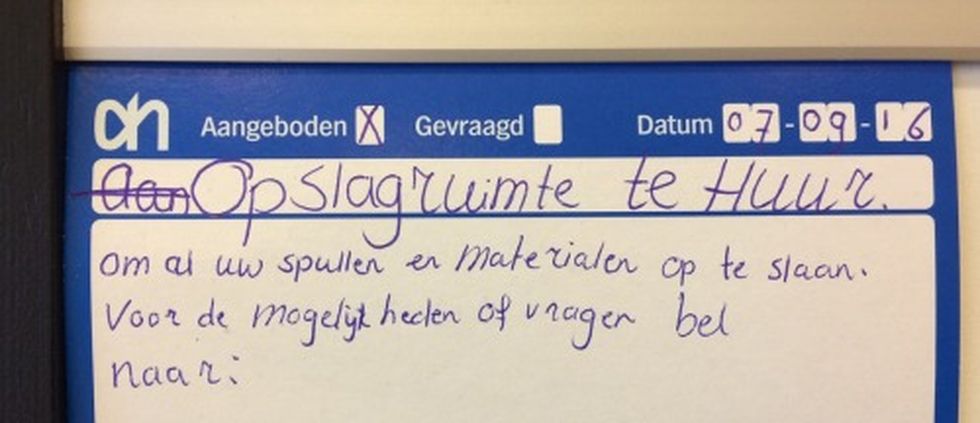 ah Aangeboden X Gevraagd Datum 07-09-16
aan Opslagruimte te Huur.
om al uw spullen en Materialen op te slaan.
Voor de mogelijkheden of vragen bel
naar: